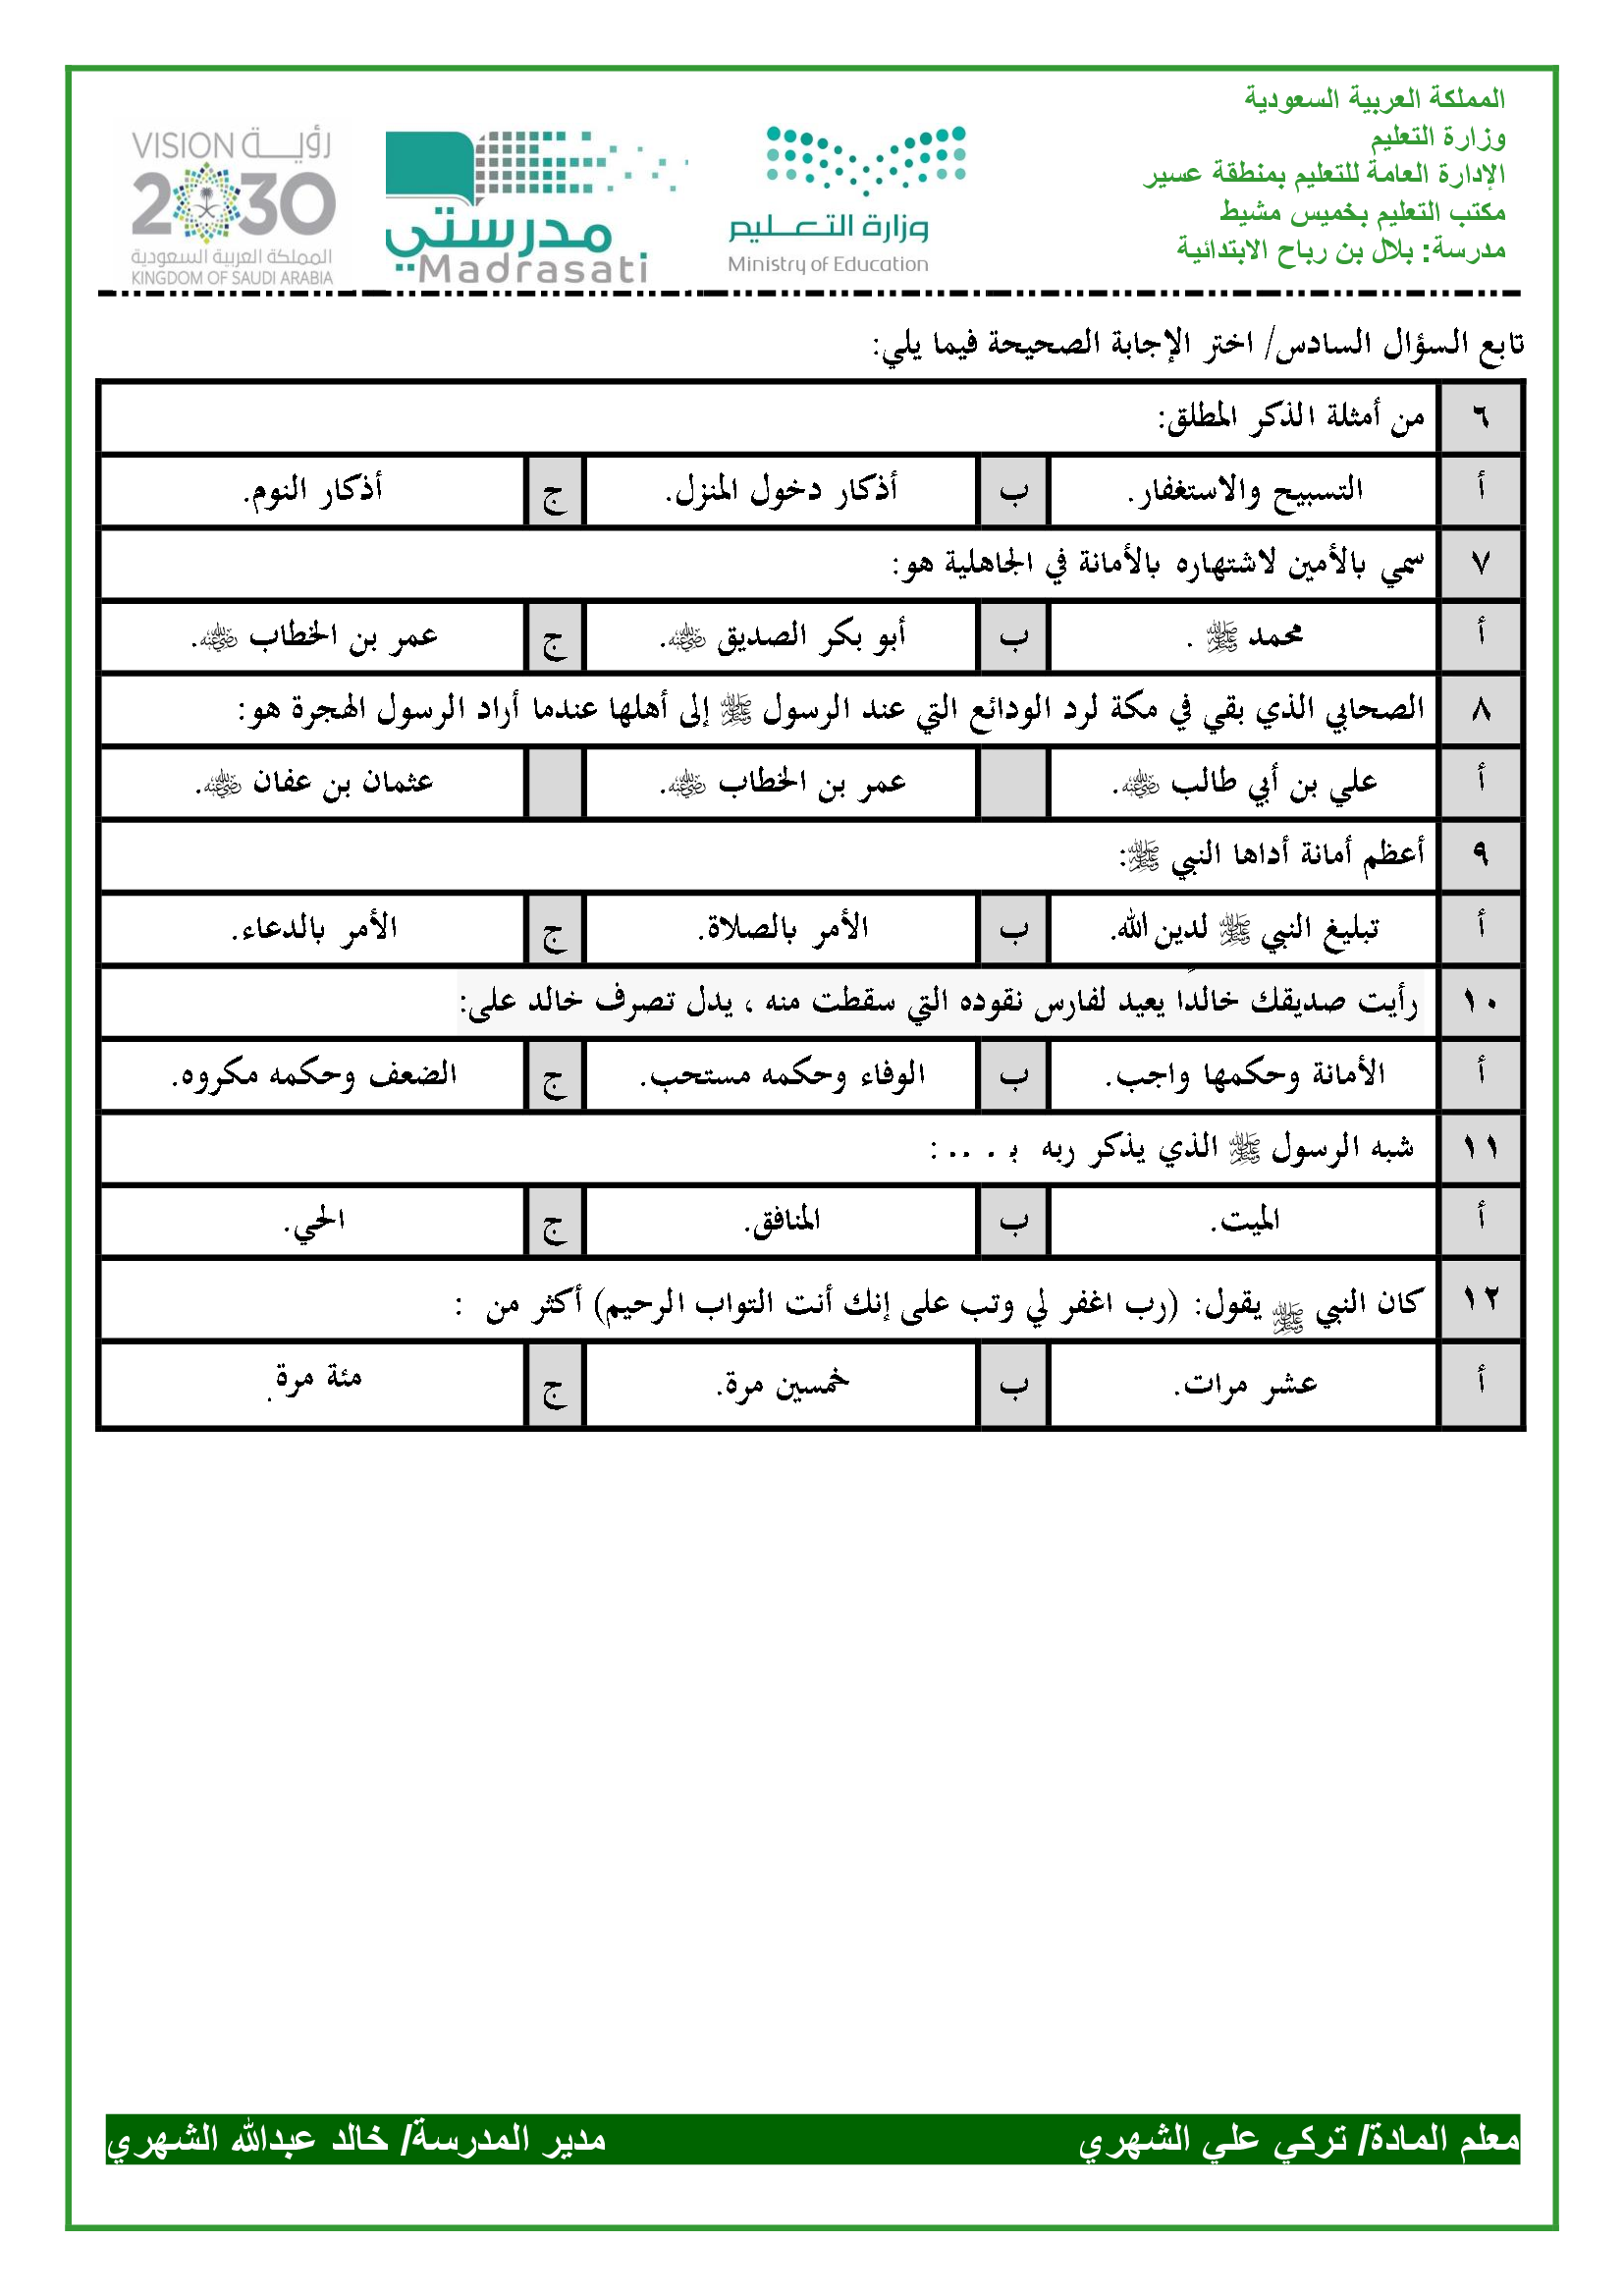 المملكة العربية السعودية
وزارة التعليم
الإدارة العامة للتعليم بمنطقة عسير
مكتب التعليم بخميس مشيط
مدرسة: بلال بن رباح الابتدائية
وزارة التعـــليم
Ministry of Education
مدرستي
Madrasati
VISION رؤيــة
2030
المملكة العربية السعودية
KINGDOM OF SAUDI ARABIA
تابع السؤال السادس/ اختر الإجابة الصحيحة فيما يلي:
٦ من أمثلة الذكر المطلق:
أ التسبيح والاستغفار. ب أذكار دخول المنزل. ج أذكار النوم.
٧ سمي بالأمين لاشتهاره بالأمانة في الجاهلية هو:
أ محمد ﷺ . ب أبو بكر الصديق رضي الله عنه. ج عمر بن الخطاب رضي الله عنه.
٨ الصحابي الذي بقي في مكة لرد الودائع التي عند الرسول ﷺ إلى أهلها عندما أراد الرسول الهجرة هو:
أ علي بن أبي طالب رضي الله عنه. عمر بن الخطاب رضي الله عنه. عثمان بن عفان رضي الله عنه.
٩ أعظم أمانة أداها النبي ﷺ:
أ تبليغ النبي ﷺ لدين الله. ب الأمر بالصلاة. ج الأمر بالدعاء.
١٠ رأيت صديقك خالدًا يعيد لفارس نقوده التي سقطت منه ، يدل تصرف خالد على:
أ الأمانة وحكمها واجب. ب الوفاء وحكمه مستحب. ج الضعف وحكمه مكروه.
١١ شبه الرسول ﷺ الذي يذكر ربه بـ . .. :
أ الميت. ب المنافق. ج الحي.
١٢ كان النبي ﷺ يقول: (رب اغفر لي وتب على إنك أنت التواب الرحيم) أكثر من :
أ عشر مرات. ب خمسين مرة. ج مئة مرة.
معلم المادة/ تركي علي الشهري مدير المدرسة/ خالد عبدالله الشهري